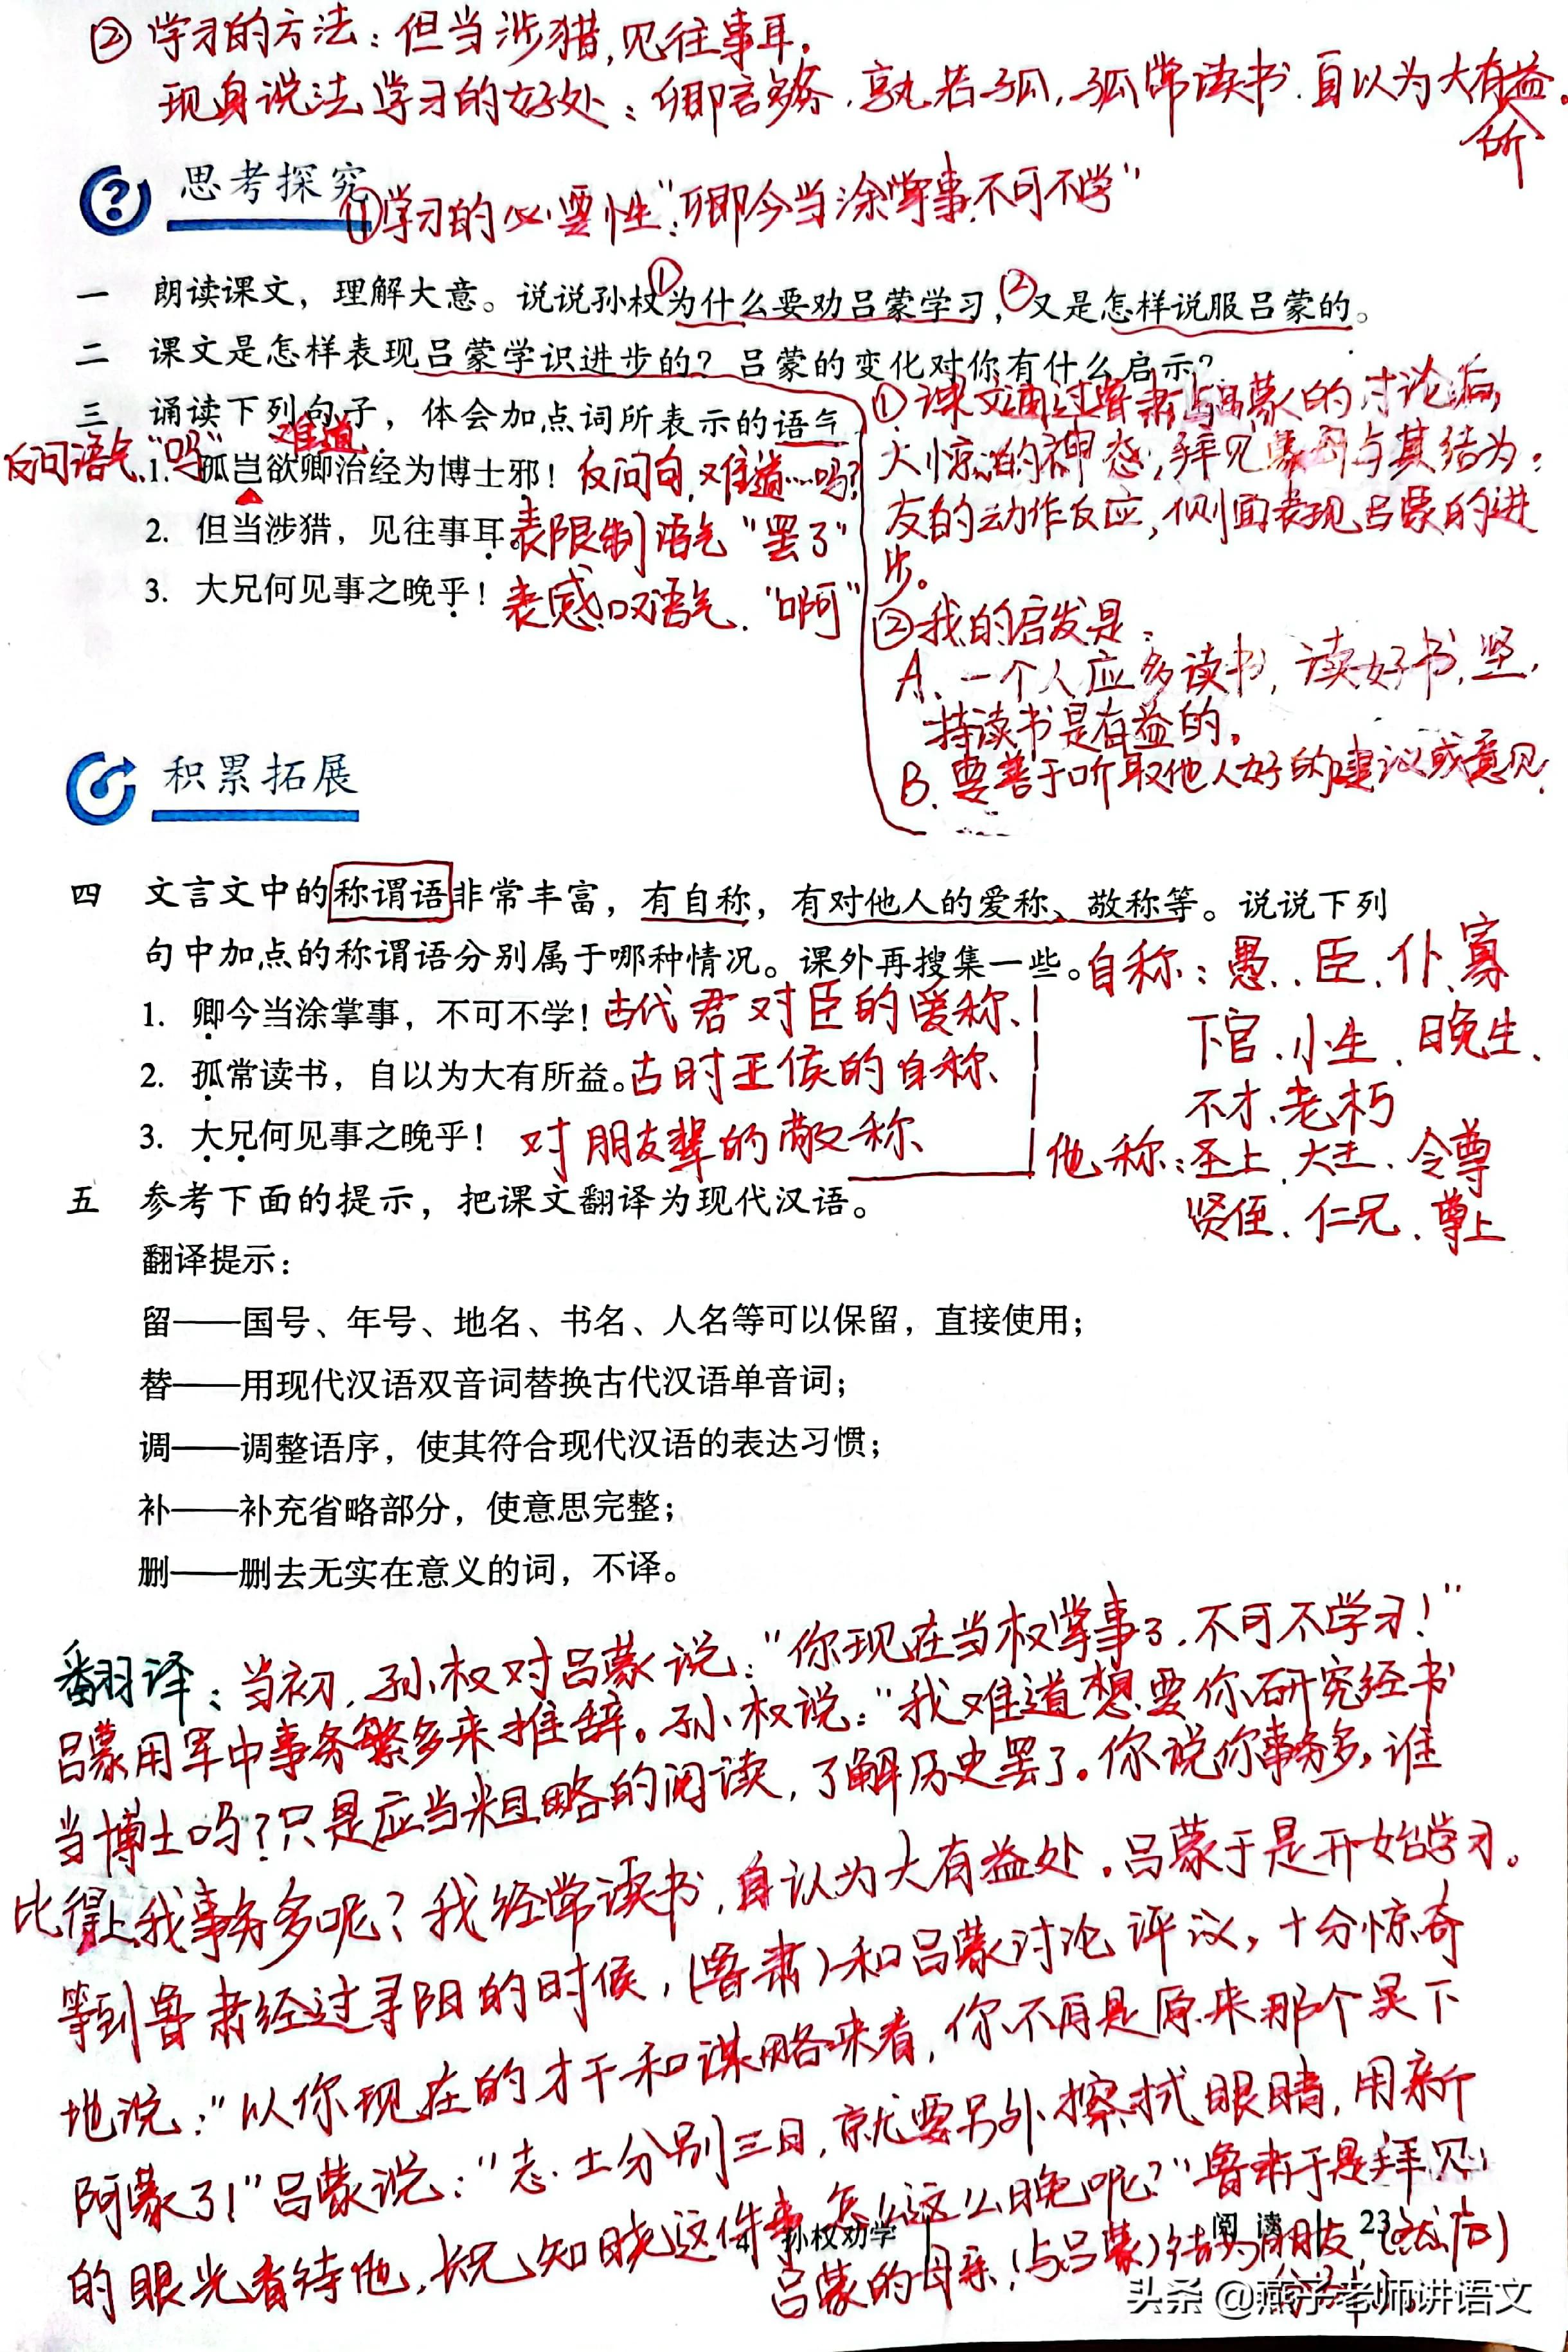 ②学习的方法：但当涉猎，见往事耳。
现身说法学习的好处：卿言多务，孰若孤，孤常读书，自以为大有益。
所
思考探究
①学习的必要性："卿今当涂掌事，不可不学"
一 朗读课文，理解大意。说说孙权①为什么要劝吕蒙学习，②又是怎样说服吕蒙的。
二 课文是怎样表现吕蒙学识进步的？吕蒙的变化对你有什么启示？
三 诵读下列句子，体会加点词所表示的语气。
反问语气"吗" 难道
1. 孤岂欲卿治经为博士邪！反问句，难道……吗？
2. 但当涉猎，见往事耳。表限制语气"罢了"
3. 大兄何见事之晚乎！表感叹语气."啊"
①课文通过鲁肃与吕蒙的讨论后，
大惊的神态，拜见蒙母与其结为
友的动作反应，侧面表现吕蒙的进
步。
②我的启发是、
A、一个人应多读书，读好书，坚
持读书是有益的。
B、要善于听取他人好的建议或意见
积累拓展
四 文言文中的称谓语非常丰富，有自称，有对他人的爱称、敬称等。说说下列
句中加点的称谓语分别属于哪种情况。课外再搜集一些。
1. 卿今当涂掌事，不可不学！古代君对臣的爱称、
2. 孤常读书，自以为大有所益。古时王侯的自称、
3. 大兄何见事之晚乎！对朋友辈的敬称、
自称：愚、臣、仆、寡
下官、小生、晚生、
不才、老朽
他称：圣上、大王、令尊
贤侄、仁兄、尊上
五 参考下面的提示，把课文翻译为现代汉语。
翻译提示：
留——国号、年号、地名、书名、人名等可以保留，直接使用；
替——用现代汉语双音词替换古代汉语单音词；
调——调整语序，使其符合现代汉语的表达习惯；
补——补充省略部分，使意思完整；
删——删去无实在意义的词，不译。
翻译：当初，孙权对吕蒙说："你现在当权掌事了，不可不学习！"
吕蒙用军中事务繁多来推辞。孙权说："我难道想要你研究经书
当博士吗？只是应当粗略的阅读，了解历史罢了。你说你事务多，谁
比得上我事务多呢？我经常读书，自认为大有益处。吕蒙于是开始学习。
等到鲁肃经过寻阳的时候，(鲁肃)和吕蒙讨论评议，十分惊奇
地说："以你现在的才干和谋略来看，你不再是原来那个吴下
阿蒙了！"吕蒙说："志士分别三日，就要另外擦拭眼睛，用新
的眼光看待他，长兄知晓这件事怎么这么晚呢？"鲁肃于是拜见
吕蒙的母亲，(与吕蒙)结为朋友，(然后)
4 孙权劝学
阅读 23
头条 @燕子老师讲语文